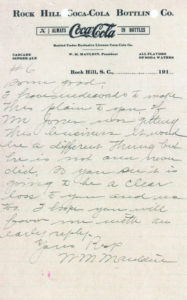 ROCK HILL COCA-COLA BOTTLING CO.
ALWAYS Coca-Cola IN BOTTLES
Bottled Under Exclusive License Coca-Cola Co.
W. M. MAULDIN, President
CASCADE
GINGER ALE
ALL FLAVORS
OF SODA WATERS
Rock Hill, S. C., 191
#6
this plant to
this business. It would
be a different thing but
he is not nor
did, so you see it is
going to be a clear
loss to you and me
so I hope you will
favor me with an
early reply.
Yours Resp
W M Mauldin